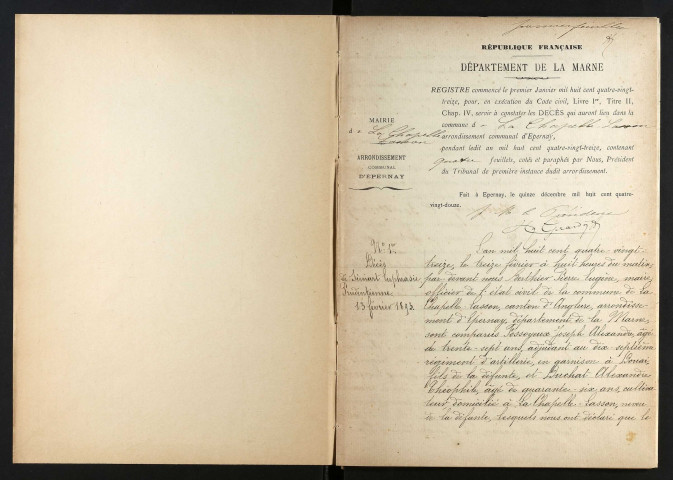 premier feuille
RÉPUBLIQUE FRANÇAISE
DÉPARTEMENT DE LA MARNE
REGISTRE commencé le premier Janvier mil huit cent quatre-vingt-
treize, pour, en exécution du Code civil, Livre Ier, Titre II,
Chap. IV, servir à constater les DÉCÈS qui auront lieu dans la
commune d e La Chapelle Lasson
arrondissement communal d'Epernay,
pendant ledit an mil huit cent quatre-vingt-treize, contenant
quatre feuillets, cotés et paraphés par Nous, Président
du Tribunal de première instance dudit arrondissement.
Fait à Epernay, le quinze décembre mil huit cent quatre-
vingt-douze.
MAIRIE
d e La Chapelle
Lasson
ARRONDISSEMENT
COMMUNAL
D'EPERNAY
le Président
No 1er
Décès
de Simart Euphrasie
13 février 1893.
L'an mil huit cent quatre-vingt-
treize, le treize février à huit heures du matin
par devant nous Mathieu Pierre Eugène, maire
officier de l'état civil de la commune de La
Chapelle-Lasson, canton d'Anglure, arrondisse-
ment d'Epernay, département de la Marne,
sont comparus Tesseyeux Joseph Alexandre, âgé
de trente-sept ans, adjudant au dix-septième
régiment d'artillerie, en garnison à Douai
fils de la défunte, et Buchat Alexandre
Théophile, âgé de quarante-six ans, cultiva-
teur, domicilié à La Chapelle-Lasson, neveu
de la défunte, lesquels nous ont déclaré que le